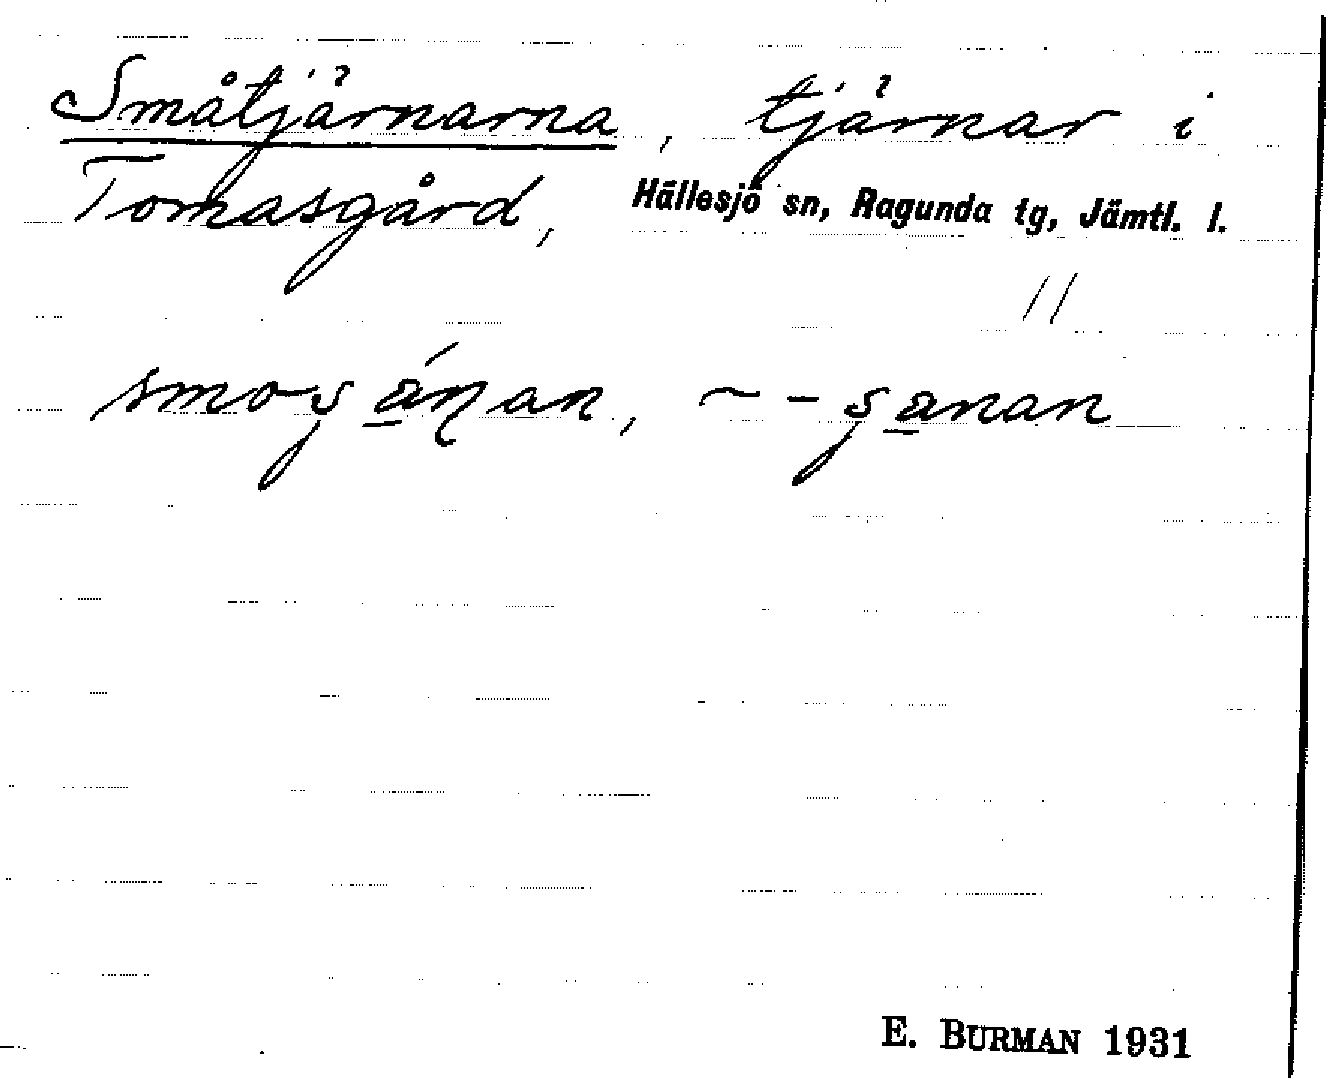 Småtjärnarna, tjärnar i
Tomasgård, Hällesjö sn, Ragunda tg, Jämtl. l.
11
E. BURMAN 1931